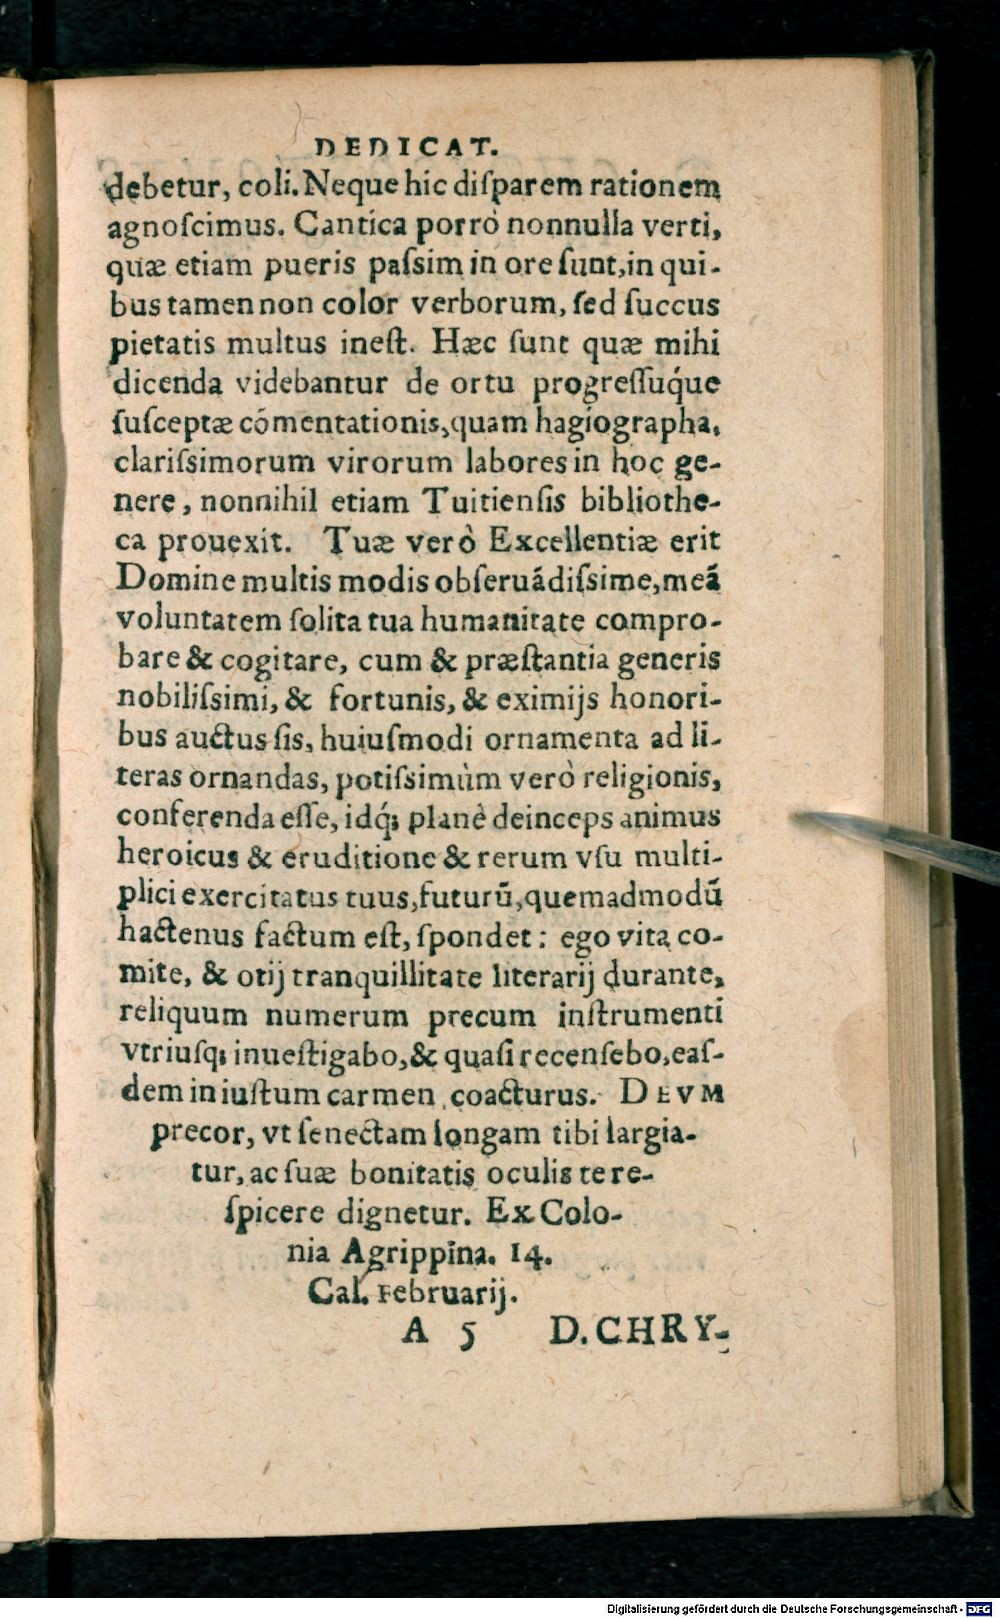 DEDICAT.
debetur, coli. Neque hic diſparem rationem
agnoſcimus. Cantica porrò nonnulla verti,
quæ etiam pueris paſsim in ore ſunt, in qui-
bus tamen non color verborum, ſed ſuccus
pietatis multus ineſt. Hæc ſunt quæ mihi
dicenda videbantur de ortu progreſſuq́ue
ſuſceptæ cōmentationis, quam hagiographa,
clariſsimorum virorum labores in hoc ge-
nere, nonnihil etiam Tuitienſis bibliothe-
ca prouexit. Tuæ verò Excellentiæ erit
Domine multis modis obſeruādiſsime, meā
voluntatem ſolita tua humanitate compro-
bare & cogitare, cum & præſtantia generis
nobiliſsimi, & fortunis, & eximijs honori-
bus auctus ſis, huiuſmodi ornamenta ad li-
teras ornandas, potiſsimùm verò religionis,
conferenda eſſe, idq́; planè deinceps animus
heroicus & eruditione & rerum vſu multi-
plici exercitatus tuus, futurū, quemadmodū
hactenus factum eſt, ſpondet: ego vita co-
mite, & otij tranquillitate literarij durante,
reliquum numerum precum inſtrumenti
vtriuſq; inueſtigabo, & quaſi recenſebo, eaſ-
dem in iuſtum carmen coacturus. DEVM
precor, vt ſenectam longam tibi largia-
tur, ac ſuæ bonitatis oculis te re-
ſpicere dignetur. Ex Colo-
nia Agrippina. 14.
Cal. Februarij.
A 5 D. CHRY-
Digitalisierung gefördert durch die Deutsche Forschungsgemeinschaft - DFG